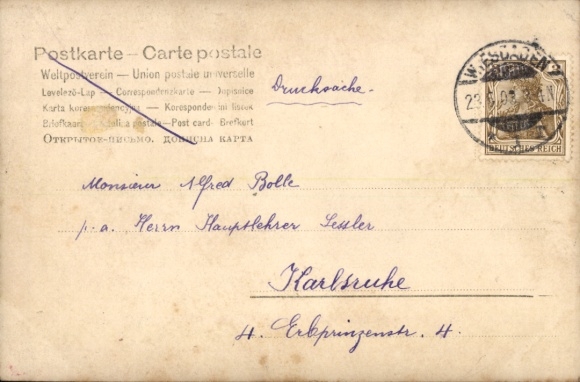 Postkarte – Carte postale
Weltpostverein – Union postale universelle
Levelező-Lap – Correspondenzkarte – Dopisnice
Karta korespondencyjna – Korespondenční lístek
Briefkaart – postale – Post card – Brefkort
Открытое письмо. дописна карта
Drucksache.
WIESBADEN
DEUTSCHES REICH
Monsieur Alfred Bolle
p.a. Herrn Hauptlehrer Sessler
Karlsruhe
4. Erbprinzenstr. 4.